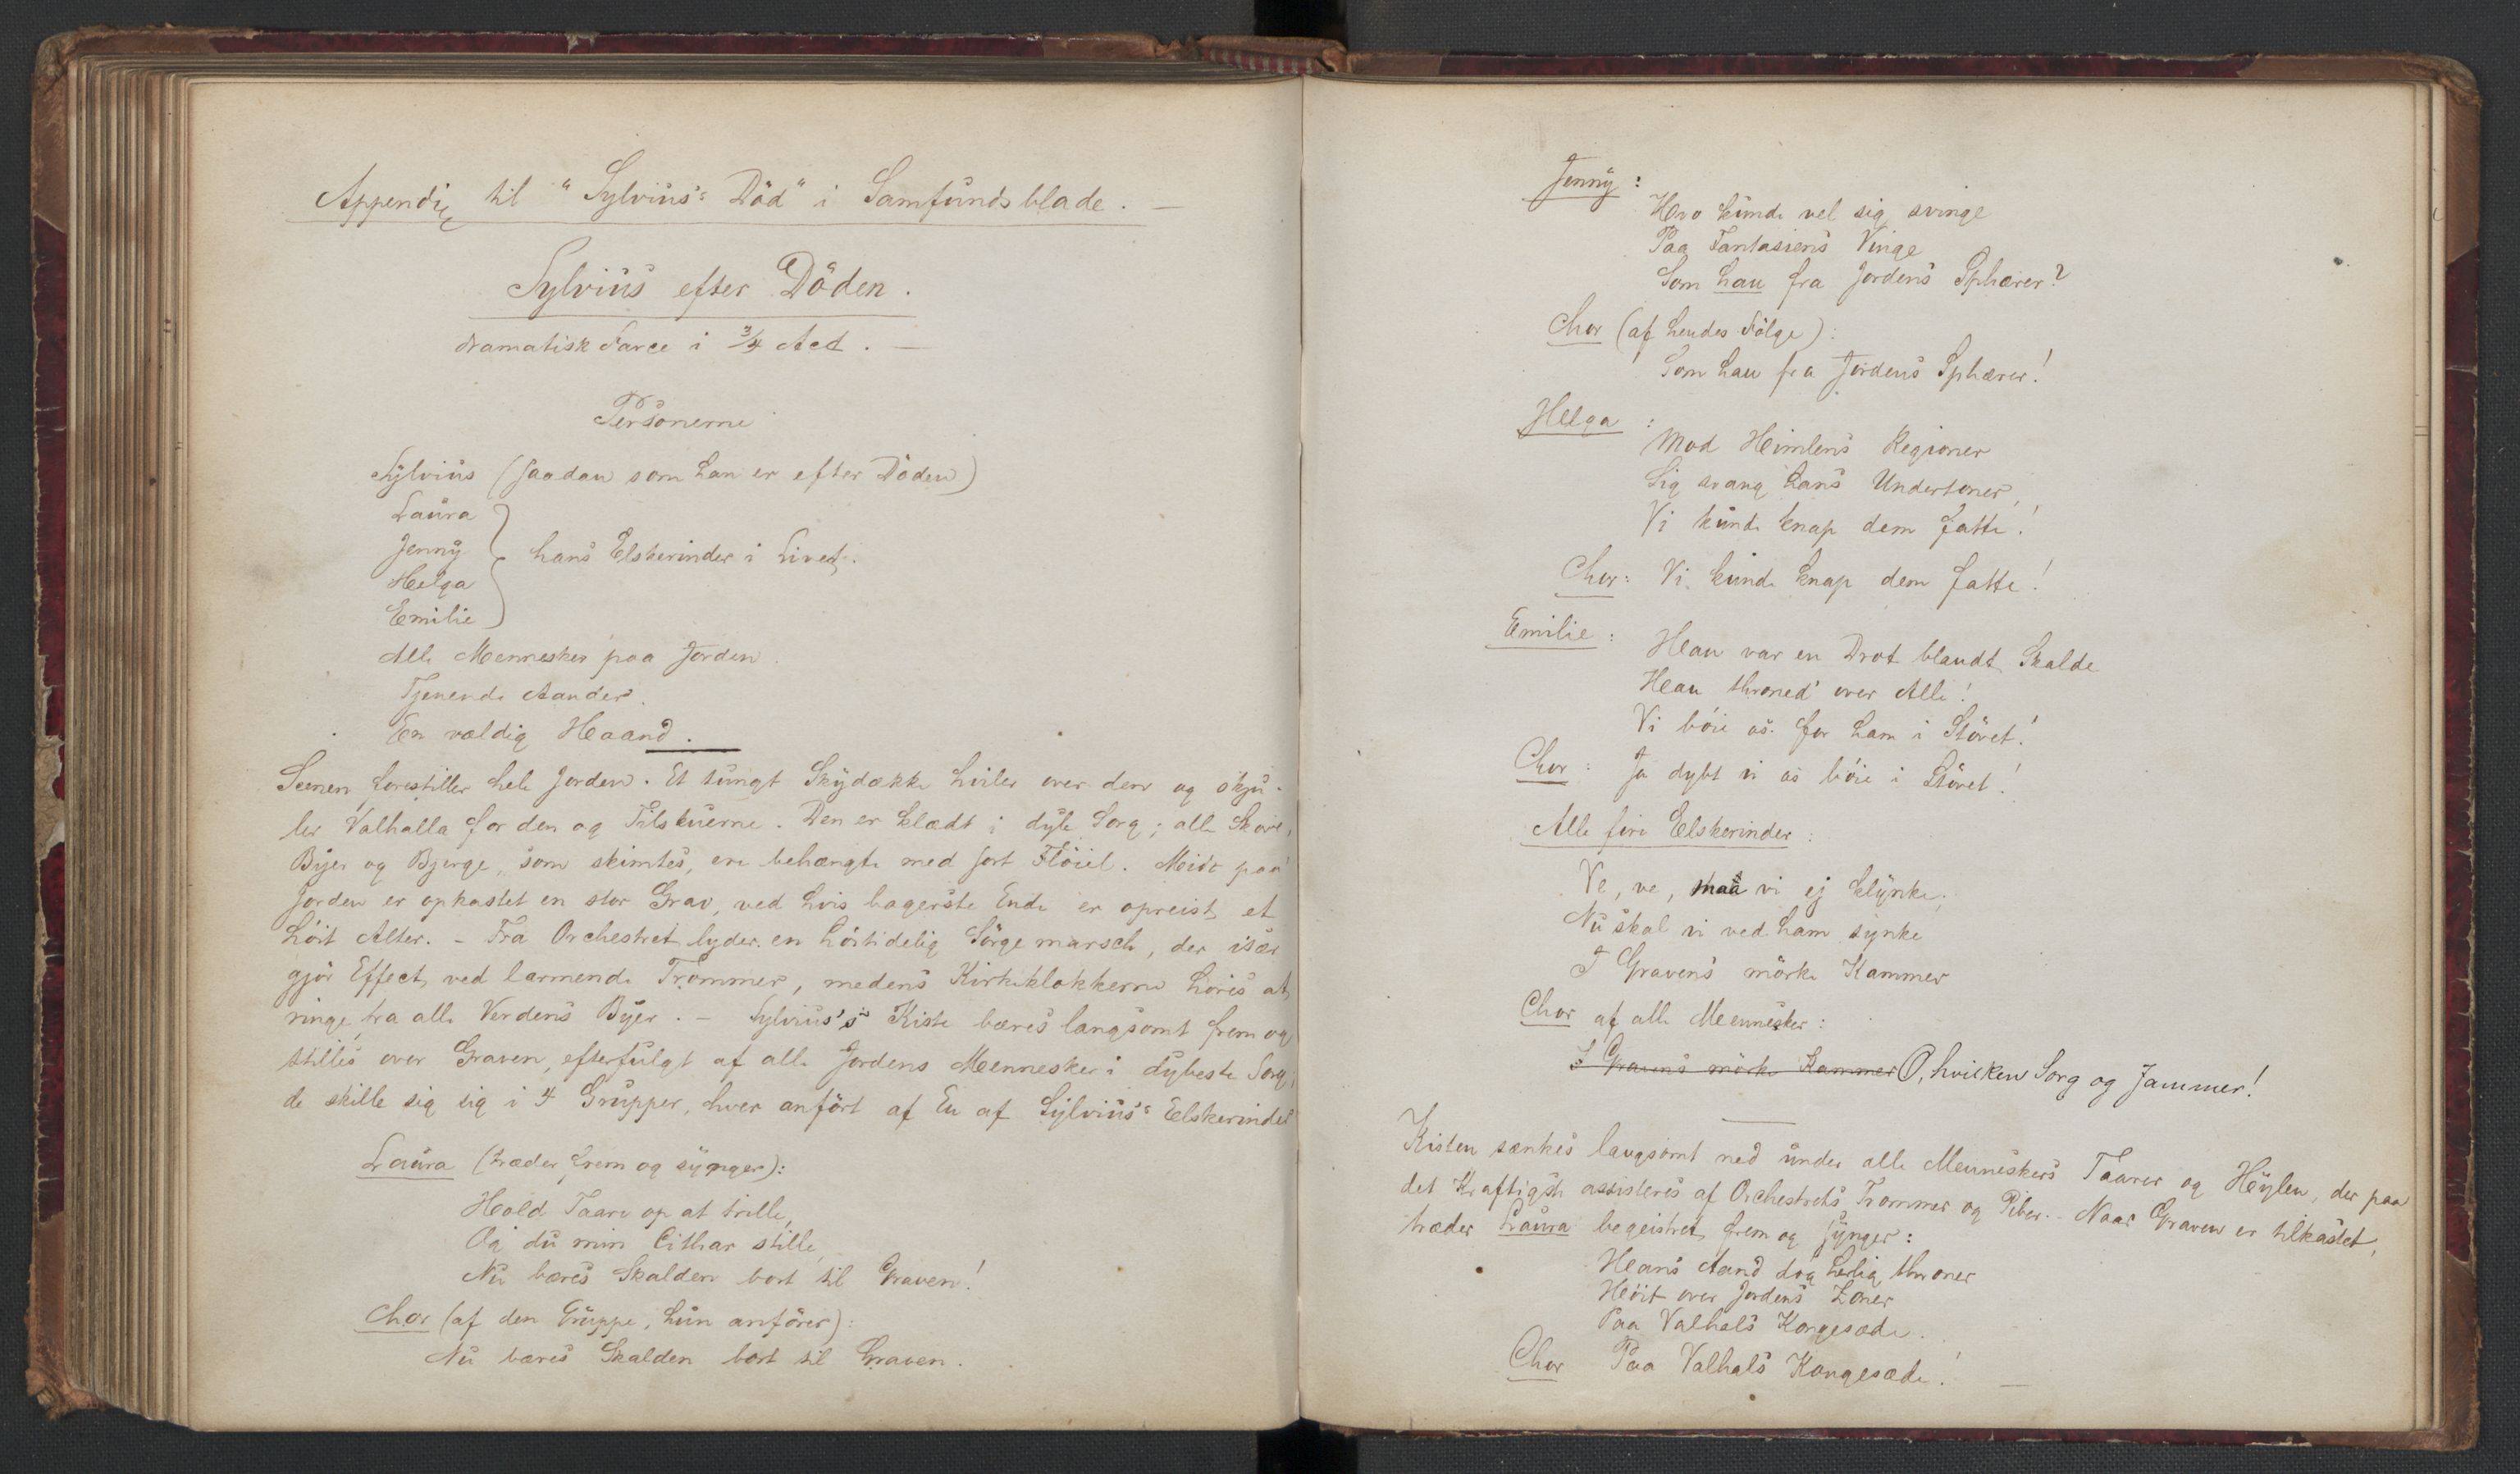 Appendix til "Sylvius's Död" i Samfundsblade. —
Sylvius efter Döden.
dramatisk Farce i 3/4 Act. —
Personerne
Sylvius (saadan som han er efter Döden)
Laura
Jenny
hans Elskerinder i Livet.
Helga
Emilie
Alle Mennesker paa Jorden.
Tjenende Aander.
En vældig Haand.
Scenen forestiller hele Jorden. Et tungt Skydække hviler over den og skju-
ler Valhalla for den og Tilskuerne. Den er klædt i dyb Sorg; alle Skove,
Byer og Bjerge, som skimtes, ere behængte med sort Flöiel. Midt paa
Jorden er opkastet en stor Grav, ved hvis bagerste Ende er opreist et
höit Alter. – Fra Orchestret lyder en höitidelig Sörgemarsch, der især
gjör Effect ved larmende Trommer, medens Kirkeklokkerne höres at
ringe fra alle Verdens Byer. – Sylvius's Kiste bæres langsomt frem og
stilles over Graven, efterfulgt af alle Jordens Mennesker i dybeste Sorg;
de skille sig sig i 4 Grupper, hver anfört af En af Sylvius's Elskerinder
Laura (træder frem og synger):
Hold Taare op at trille,
Og du min Cithar stille,
Nu bæres Skalden bort til Graven!
Chor (af den Gruppe, hun anförer):
Nu bæres Skalden bort til Graven.
Jenny:
Hvo kunde vel sig svinge
Paa Fantasiens Vinge
Som han fra Jordens Sphærer?
Chor (af hendes Fölge):
Som han fra Jordens Sphærer!
Helga:
Mod Himlens Regioner
Sig svang hans Undertoner,
Vi kunde knap dem fatte!
Chor: Vi kunde knap dem fatte!
Emilie:
Han var en Drot blandt Skalde
Han throned' over Alle!
Vi böie os for ham i Stövet!
Chor: Ja dybt vi os böie i Stövet!
Alle fire Elskerinder:
Ve, ve, maa vi ej klynke,
Nu skal vi ved ham synke
I Gravens mörke Kammer
Chor af alle Mennesker:
I Gravens mörke Kammer O, hvilken Sorg og Jammer!
Kisten sænkes langsomt ned under alle Menneskers Taarer og Hylen, der paa
det Kraftigste assisteres af Orchestrets Trommer og Piber. – Naar Graven er tilkastet,
træder Laura begeistret frem og synger:
Hans Aand dog herlig throner
Höit over Jordens Zoner
Paa Valhals Kongesæde.
Chor Paa Valhals Kongesæde! —